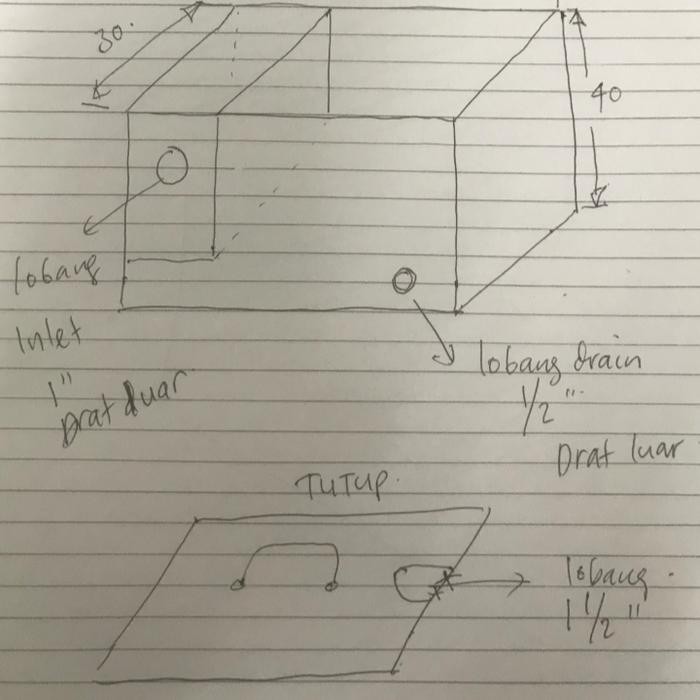 30.
40
lobang
Inlet
1"
Drat luar
lobang drain
1/2"
Drat luar
TUTUP.
lobang.
1 1/2"